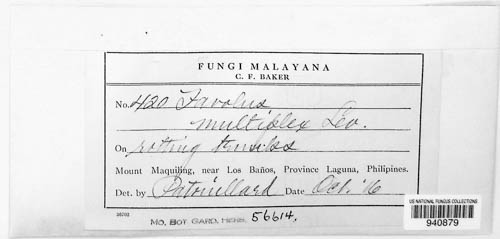 FUNGI MALAYANA
C. F. BAKER
No. 420 Favolus
multiplex Lev.
On rotting trunks
Mount Maquiling, near Los Baños, Province Laguna, Philipines.
Det. by Patouillard Date Oct. '16
26202
MO. BOT. GARD. HERB. 56614.
US NATIONAL FUNGUS COLLECTIONS
940879